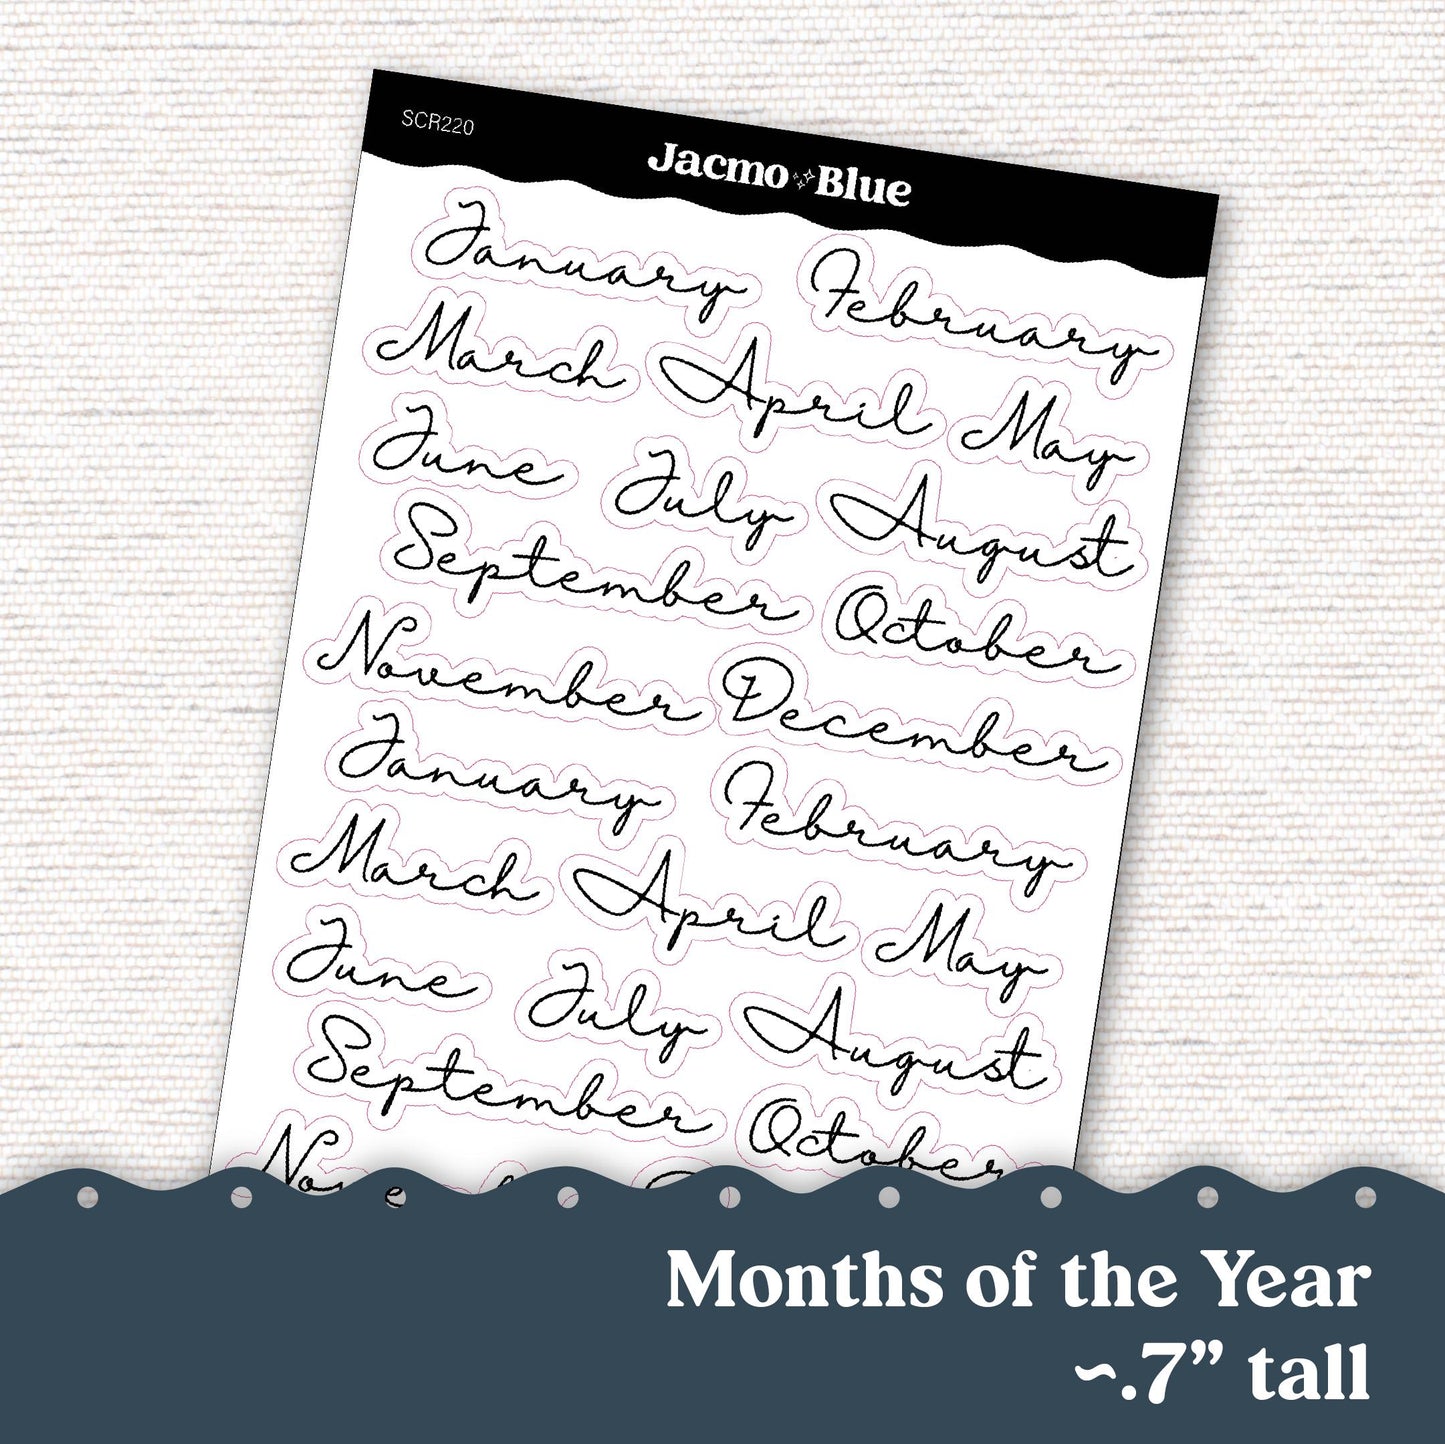 SCR220
Jacmo Blue
January February
March April May
June July August
September October
November December
January February
March April May
June July August
September October
Months of the Year
~.7” tall